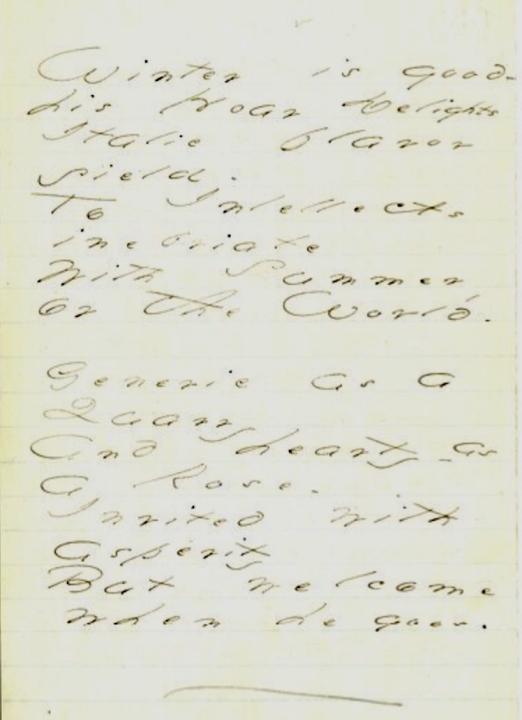 Winter is good -
his Hoar Delights
Italic flavor
yield -
To Intellects
inebriate
With Summer,
or the World.
Generic as a
Quarry
And hearty - as
a Rose -
Invited with
asperity
But welcome
when he goes.